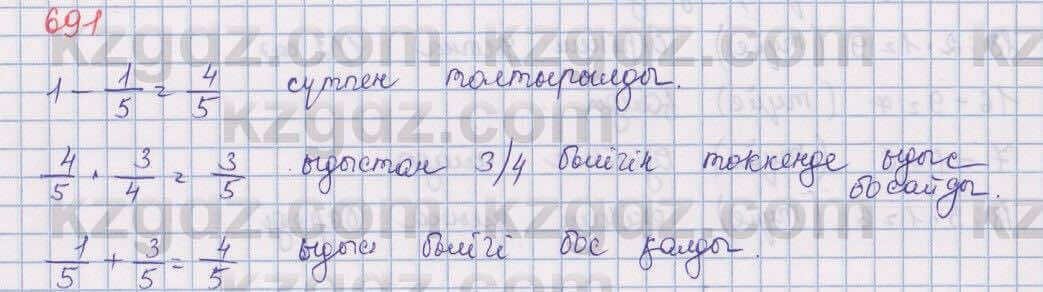 691
1 - 1/5 = 4/5 сүтпен толтырылды.
4/5 · 3/4 = 3/5 ыдыстан 3/4 бөлігін төккенде ыдыс
босайды.
1/5 + 3/5 = 4/5 ыдыс бөлігі бос қалды.
kzgdz.com kzgdz.com
kzgdz.com
kzgdz.com